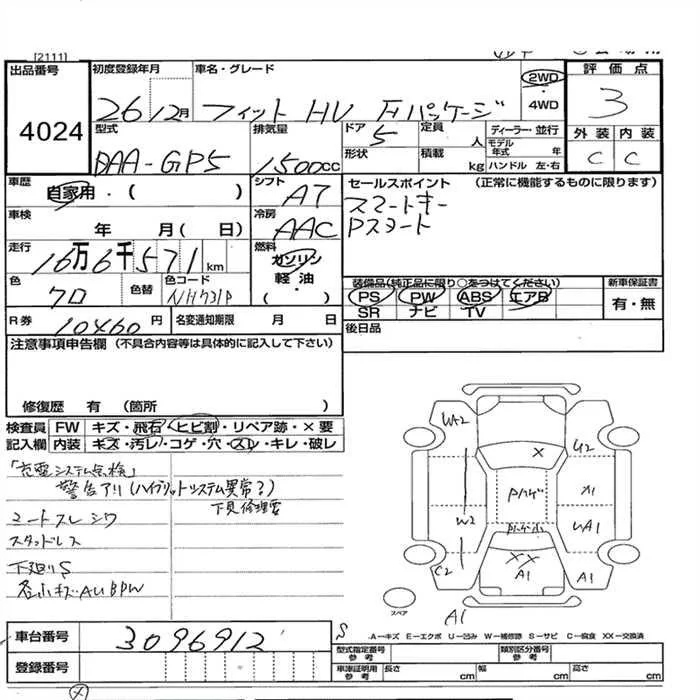 [2111]
出品番号
4024
初度登録年月
26 12月
車名・グレード
フィット HV Fパッケージ
2WD
・
4WD
評価点
3
外装 内装
C C
型式
DAA-GP5
排気量
1500cc
ドア
5
形状
定員
人
積載
kg
ディーラー・並行
モデル年式 年
ハンドル 左・右
車歴
自家用・( )
シフト
A7
車検
年 月( 日)
冷房
AAC
走行
16万6千571km
燃料
ガソリン
軽油
・( )
色
クロ
色替
色コード
NH731P
セールスポイント (正常に機能するものに限ります)
スマートキー
Pスタート
装備品(純正品に限り○をつけてください)
PS PW ABS エアB
SR ナビ TV
新車保証書
有・無
後日品
R券
10460円
名変通知期限 月 日
注意事項申告欄 (不具合内容等は具体的に記入して下さい)
修復歴 有 (箇所 )
検査員記入欄
FW キズ・飛石・ヒビ割・リペア跡・×要
内装 キズ・汚レ・コゲ・穴・スレ・キレ・破レ
「充電システム点検」
警告アリ(ハイブリットシステム異常?)
下見修理要
シートスレ シワ
スタッドレス
下廻りS
各小キズ・AUBPW
UA2
U2
×
Pハゲ
A1
W2
UA1
Pハゲ小
××
C2
A1
A1
スペア
A1
S
A―キズ E―エクボ U―凹み W―補修跡 S―サビ C―腐食 XX―交換済
車台番号
3096912
登録番号
型式指定番号 参考
類別区分番号 参考
車庫証明用 参考
長さ cm
幅 cm
高さ cm